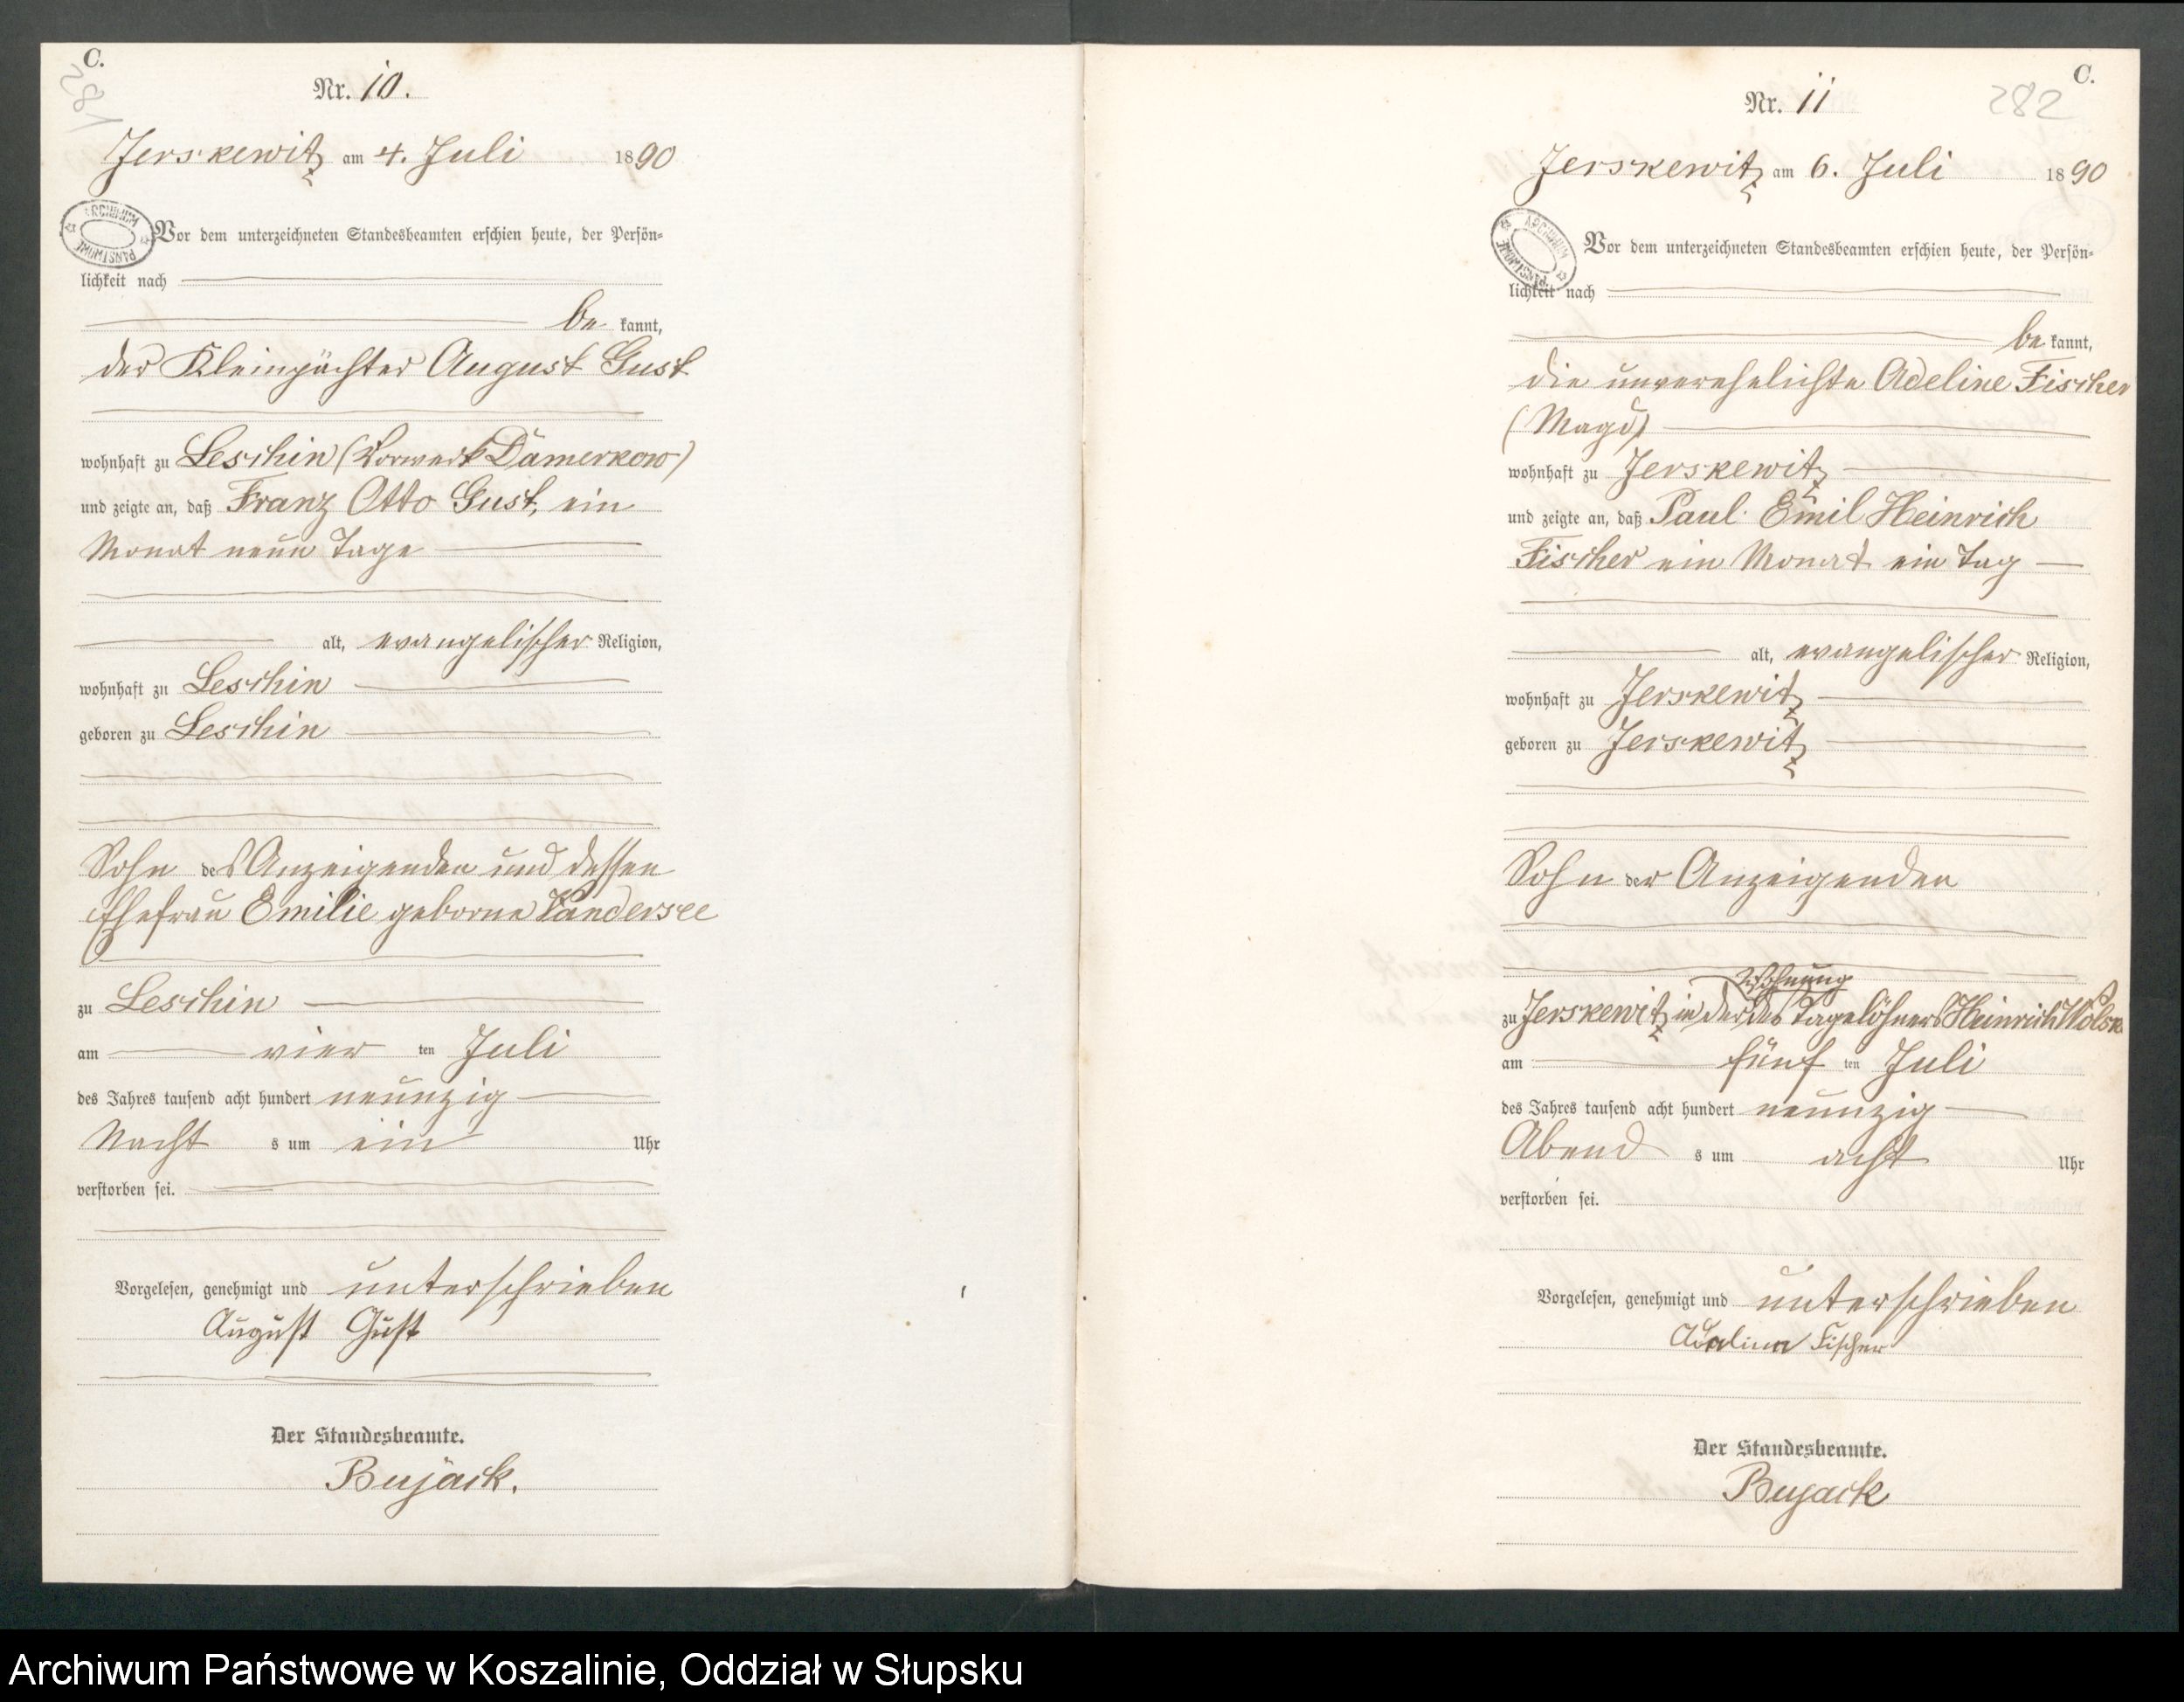 C.
281
Nr. 10.
Jerskewitz am 4. Juli 1890
ARCHIWUM PAŃSTWOWE
Vor dem unterzeichneten Standesbeamten erschien heute, der Persön-
lichkeit nach
be kannt,
der Kleinpächter August Gust
wohnhaft zu Leschin (Vorwerk Damerkow)
und zeigte an, daß Franz Otto Gust, ein
Monat neun Tage
alt, evangelischer Religion,
wohnhaft zu Leschin
geboren zu Leschin
Sohn des Anzeigenden und dessen
Ehefrau Emilie geborne Vandersee
zu Leschin
am vier ten Juli
des Jahres tausend acht hundert neunzig
Nacht s um ein Uhr
verstorben sei.
Vorgelesen, genehmigt und unterschrieben
August Gust
Der Standesbeamte.
Bujack.
C.
282
Nr. 11
Jerskewitz am 6. Juli 1890
ARCHIWUM PAŃSTWOWE
Vor dem unterzeichneten Standesbeamten erschien heute, der Persön-
lichkeit nach
be kannt,
die unverehelichte Adeline Fischer
(Magd)
wohnhaft zu Jerskewitz
und zeigte an, daß Paul Emil Heinrich
Fischer ein Monat ein Tag
alt, evangelischer Religion,
wohnhaft zu Jerskewitz
geboren zu Jerskewitz
Sohn der Anzeigenden
Wohnung
zu Jerskewitz in der des Tagelöhners Heinrich
am fünf ten Juli
des Jahres tausend acht hundert neunzig
Abend s um acht Uhr
verstorben sei.
Vorgelesen, genehmigt und unterschrieben
Adeline Fischer
Der Standesbeamte.
Bujack
Archiwum Państwowe w Koszalinie, Oddział w Słupsku